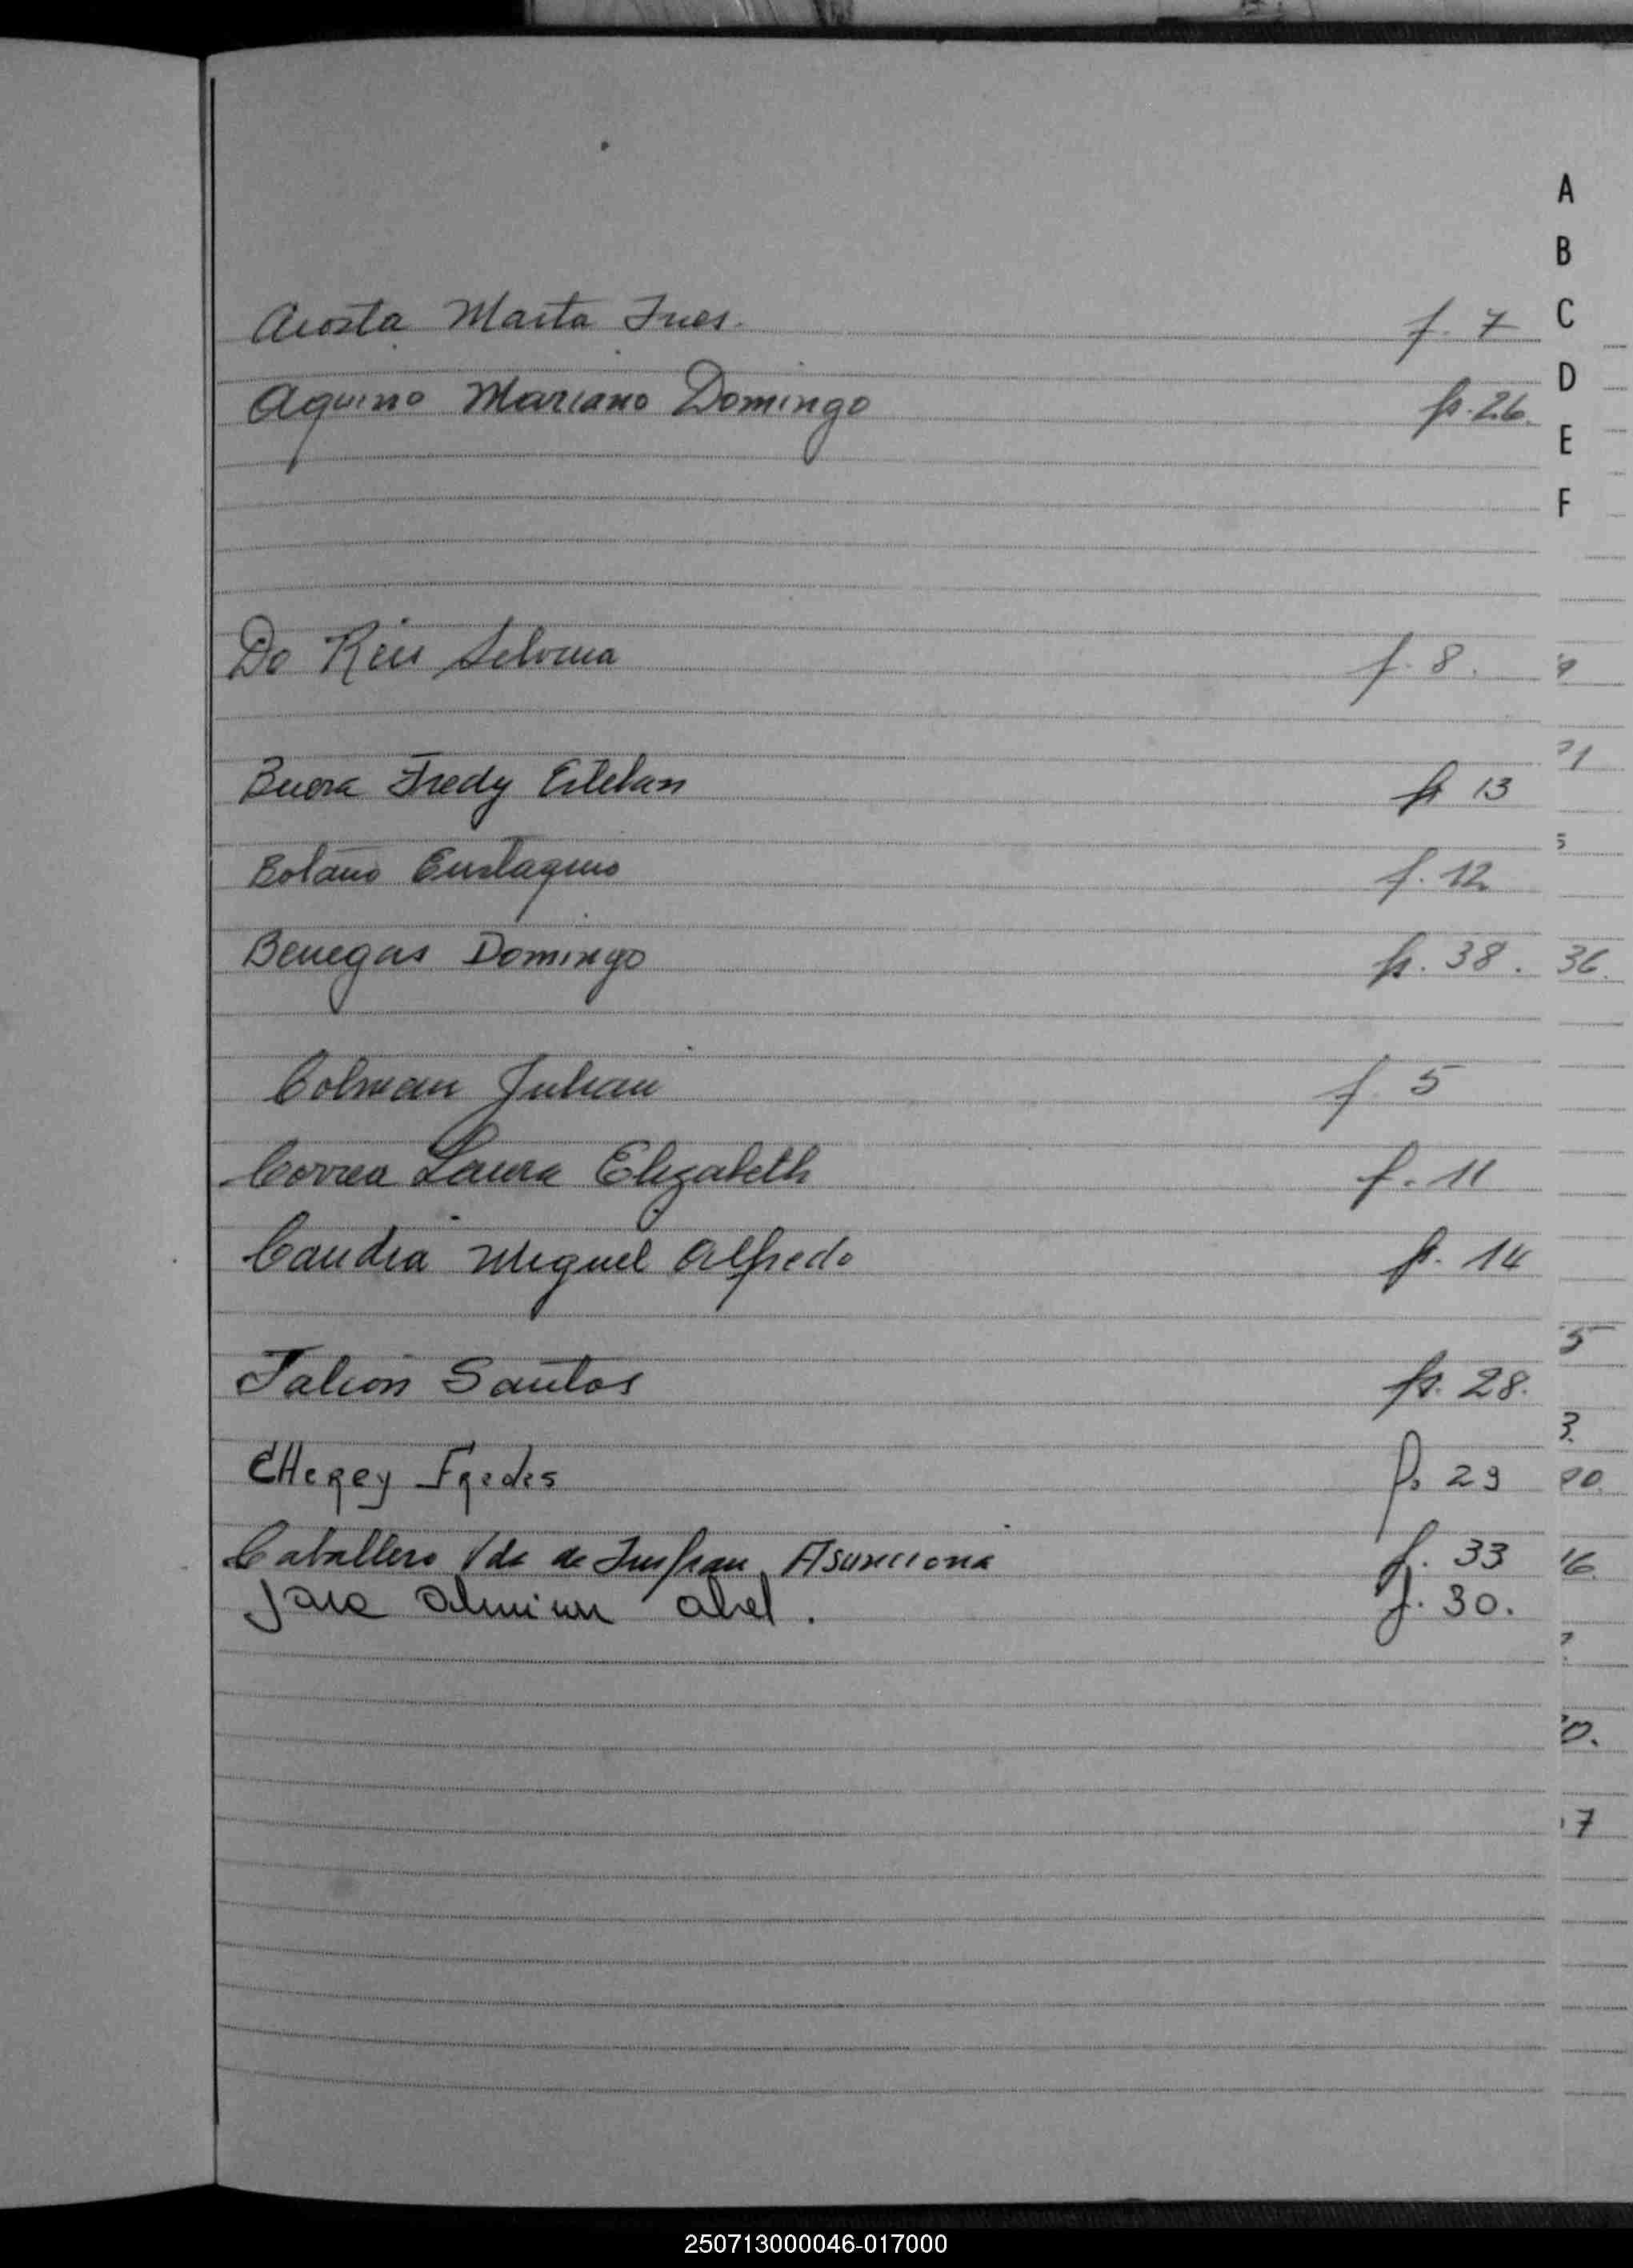 A
B
C
D
E
F
Acosta Marta Ines. f. 7
Aquino Mariano Domingo fs. 26.
Do Reis f. 8.
Fredy Esteban fs 13
Bolaño Eustaquio f. 12
Benegas Domingo fs. 38. 36.
Colman Julian f. 5
Correa Laura Elizabeth f. 11
Candia Miguel Alfredo fs. 14
Santos fs. 28.
fs. 29
Caballero Vda de Insfran Asunciona f. 33
Jara Abel. f. 30.
250713000046-017000